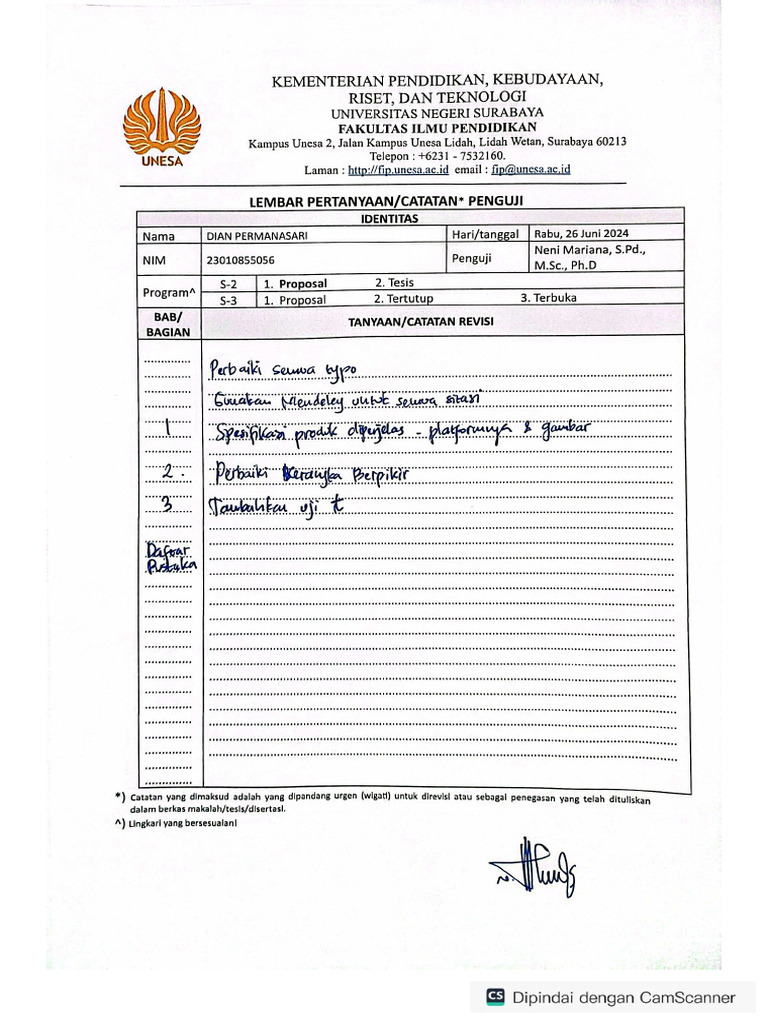 KEMENTERIAN PENDIDIKAN, KEBUDAYAAN,
RISET, DAN TEKNOLOGI
UNIVERSITAS NEGERI SURABAYA
FAKULTAS ILMU PENDIDIKAN
Kampus Unesa 2, Jalan Kampus Unesa Lidah, Lidah Wetan, Surabaya 60213
Telepon : +6231 - 7532160.
Laman : http://fip.unesa.ac.id email : fip@unesa.ac.id
UNESA
LEMBAR PERTANYAAN/CATATAN* PENGUJI
IDENTITAS
Nama DIAN PERMANASARI Hari/tanggal Rabu, 26 Juni 2024
NIM 23010855056 Penguji Neni Mariana, S.Pd.,
M.Sc., Ph.D
Program^ S-2 1. Proposal 2. Tesis
S-3 1. Proposal 2. Tertutup 3. Terbuka
BAB/
BAGIAN TANYAAN/CATATAN REVISI
Perbaiki semua typo
Gunakan Mendeley untuk semua sitasi
1 Spesifikasi produk diperjelas - platformnya & gambar
2. Perbaiki Kerangka Berpikir
3 Tambahkan uji t
Daftar
Pustaka
*) Catatan yang dimaksud adalah yang dipandang urgen (wigati) untuk direvisi atau sebagai penegasan yang telah dituliskan
dalam berkas makalah/tesis/disertasi.
^) Lingkari yang bersesuaian!
CS Dipindai dengan CamScanner